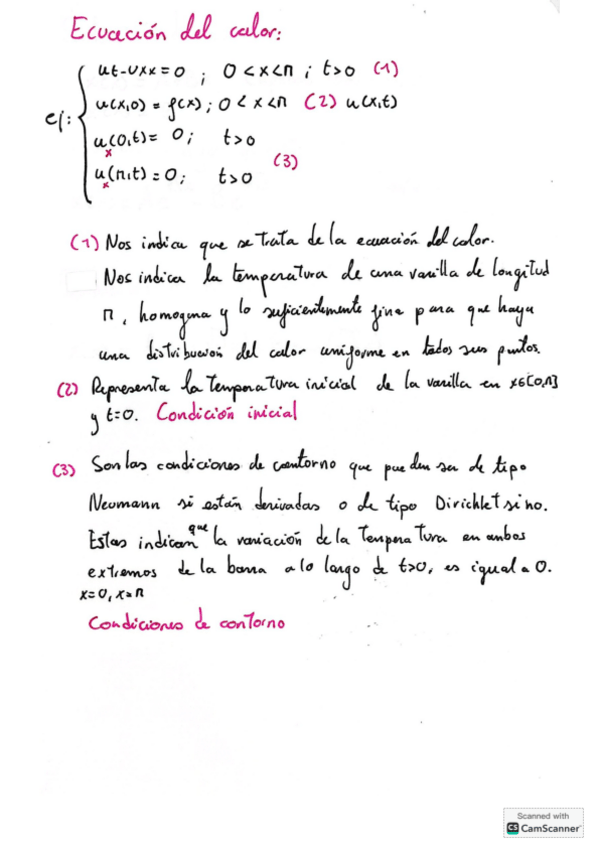 Ecuación del calor:
ut-uxx=0 ; 0<x<π ; t>0 (1)
ej: u(x,0) = f(x) ; 0<x<π (2) u(x,t)
ux(0,t)= 0; t>0
(3)
ux(π,t)=0; t>0
(1) Nos indica que se trata de la ecuación del calor.
Nos indica la temperatura de una varilla de longitud
π, homogena y lo suficientemente fina para que haya
una distribución del calor uniforme en todos sus puntos.
(2) Representa la temperatura inicial de la varilla en x∈[0,π]
y t=0. Condición inicial
(3) Son las condiciones de contorno que pueden ser de tipo
Neumann si están derivadas o de tipo Dirichlet si no.
Estas indican que la variación de la temperatura en ambos
extremos de la barra a lo largo de t>0, es igual a 0.
x=0, x=π
Condiciones de contorno
Scanned with
CS CamScanner